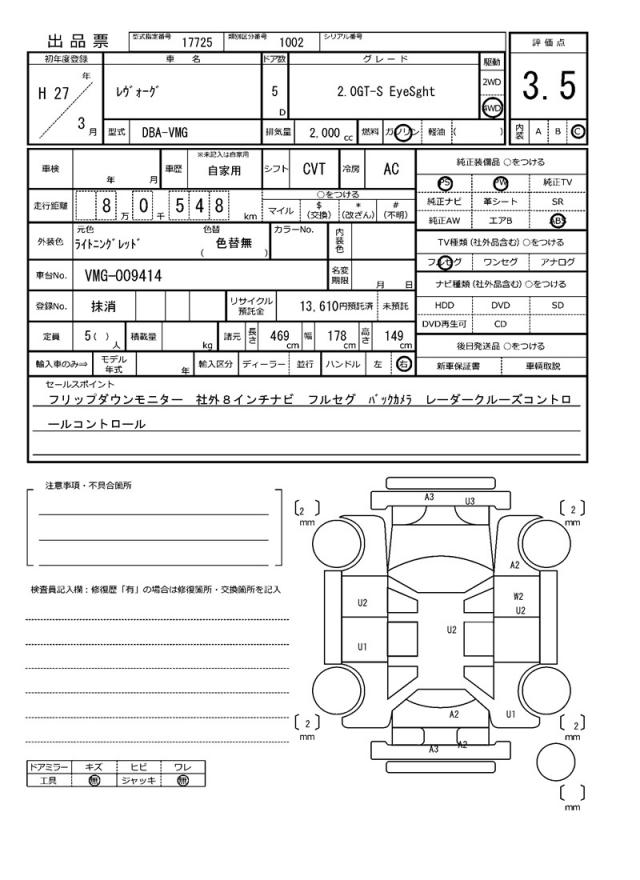 出品票
型式指定番号 17725 類別区分番号 1002 シリアル番号
初年度登録 車名 ドア数 グレード 駆動 評価点
H 27 年 3 月
レヴォーグ 5 D 2.0GT-S EyeSght 2WD 4WD
3.5
型式 DBA-VMG 排気量 2,000 cc 燃料 ガソリン 軽油 ( )
内装 A B C
車検 年 月 車歴 ※未記入は自家用 自家用 シフト CVT 冷房 AC
純正装備品 ○をつける
PS PW 純正TV
走行距離 8 万 0 千 5 4 8 km
○をつける
マイル $ (交換) * (改ざん) # (不明)
純正ナビ 革シート SR
純正AW エアB ABS
外装色 元色 ライトニングレッド 色替 ( 色替無 ) カラーNo. 内装色
TV種類 (社外品含む) ○をつける
フルセグ ワンセグ アナログ
車台No. VMG-009414 名変期限 月 日
ナビ種類 (社外品含む) ○をつける
登録No. 抹消 リサイクル預託金 13,610円預託済 未預託
HDD DVD SD
DVD再生可 CD
定員 5 ( ) 人 積載量 kg 諸元 長さ 469 cm 幅 178 cm 高さ 149 cm
後日発送品 ○をつける
輸入車のみ⇒ モデル年式 年 輸入区分 ディーラー 並行 ハンドル 左 右
新車保証書 車輌取説
セールスポイント
フリップダウンモニター 社外8インチナビ フルセグ バックカメラ レーダークルーズコントロ
ールコントロール
注意事項・不具合箇所
検査員記入欄:修復歴「有」の場合は修復箇所・交換箇所を記入
A3 U3
[ 2 ] mm [ 2 ] mm
A2
U2 W2
U2
U2
U1
A2 U1
[ 2 ] mm [ 2 ] mm
A3 A2
[ ] mm
ドアミラー キズ ヒビ ワレ
工具 無 ジャッキ 無